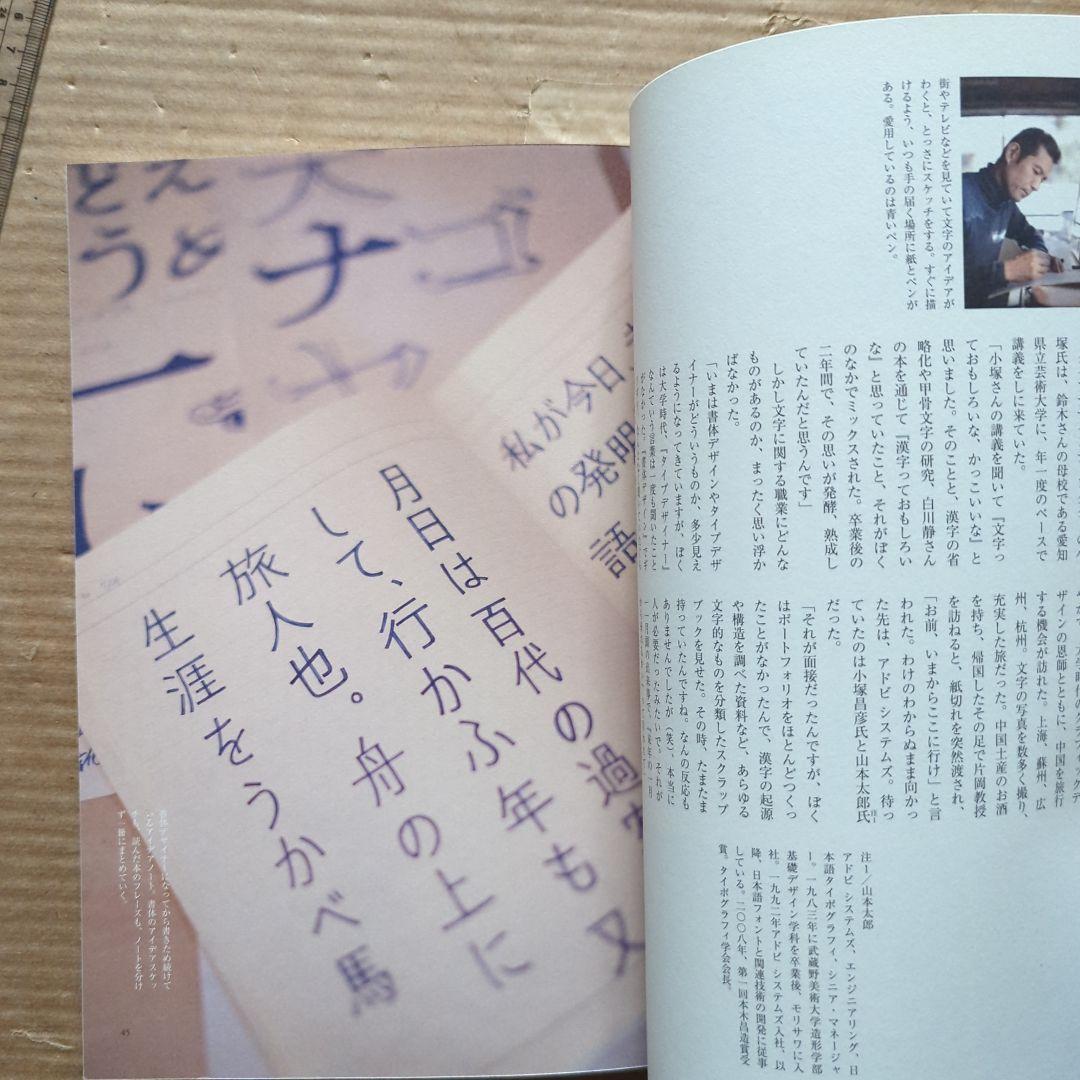 街やテレビなどを見ていて文字のアイデアが
わくと、とっさにスケッチをする。すぐに描
けるよう、いつも手の届く場所に紙とペンが
ある。愛用しているのは青いペン。
塚氏は、鈴木さんの母校である愛知
県立芸術大学に、年一度のペースで
講義をしに来ていた。
「小塚さんの講義を聞いて『文字っ
ておもしろいな、かっこいいな』と
思いました。そのことと、漢字の省
略化や甲骨文字の研究、白川静さん
の本を通じて『漢字っておもしろい
な』と思っていたこと、それがぼく
のなかでミックスされた。卒業後の
二年間で、その思いが発酵、熟成し
ていたんだと思うんです」
しかし文字に関する職業にどんな
ものがあるのか、まったく思い浮か
ばなかった。
「いまは書体デザインやタイプデザ
イナーがどういうものか、多少見え
るようになってきていますが、ぼく
は大学時代、『タイプデザイナー』
なんていう言葉は一度も聞いたこと
ザインの恩師とともに、中国を旅行
する機会が訪れた。上海、蘇州、広
州、杭州。文字の写真を数多く撮り、
充実した旅だった。中国土産のお酒
を持ち、帰国したその足で片岡教授
を訪ねると、紙切れを突然渡され、
「お前、いまからここに行け」と言
われた。わけのわからぬまま向かっ
た先は、アドビ システムズ。待っ
ていたのは小塚昌彦氏と山本太郎氏
注1
だった。
「それが面接だったんですが、ぼく
はポートフォリオをほとんどつくっ
たことがなかったんで、漢字の起源
や構造を調べた資料など、あらゆる
文字的なものを分類したスクラップ
ブックを見せた。その時、たまたま
持っていたんですね。なんの反応も
ありませんでしたが（笑）、本当に
人が必要だったみたいで。それが
注1／山本太郎
アドビ システムズ、エンジニアリング、日
本語タイポグラフィ、シニア・マネージャ
ー。一九八三年に武蔵野美術大学造形学部
基礎デザイン学科を卒業後、モリサワに入
社。一九九二年アドビ システムズ入社、以
降、日本語フォントと関連技術の開発に従事
している。二〇〇八年、第一回本木昌造賞受
賞。タイポグラフィ学会会長。
うと
ナゴ
私が今日
の発明
語
月日は百代の過
して、行かふ年も又
旅人也。舟の上に
生涯をうかべ馬
いるアイデアノート。書体のアイデアスケッ
チや、読んだ本のフレーズも、ノートを分け
ず一冊にまとめていく。
45